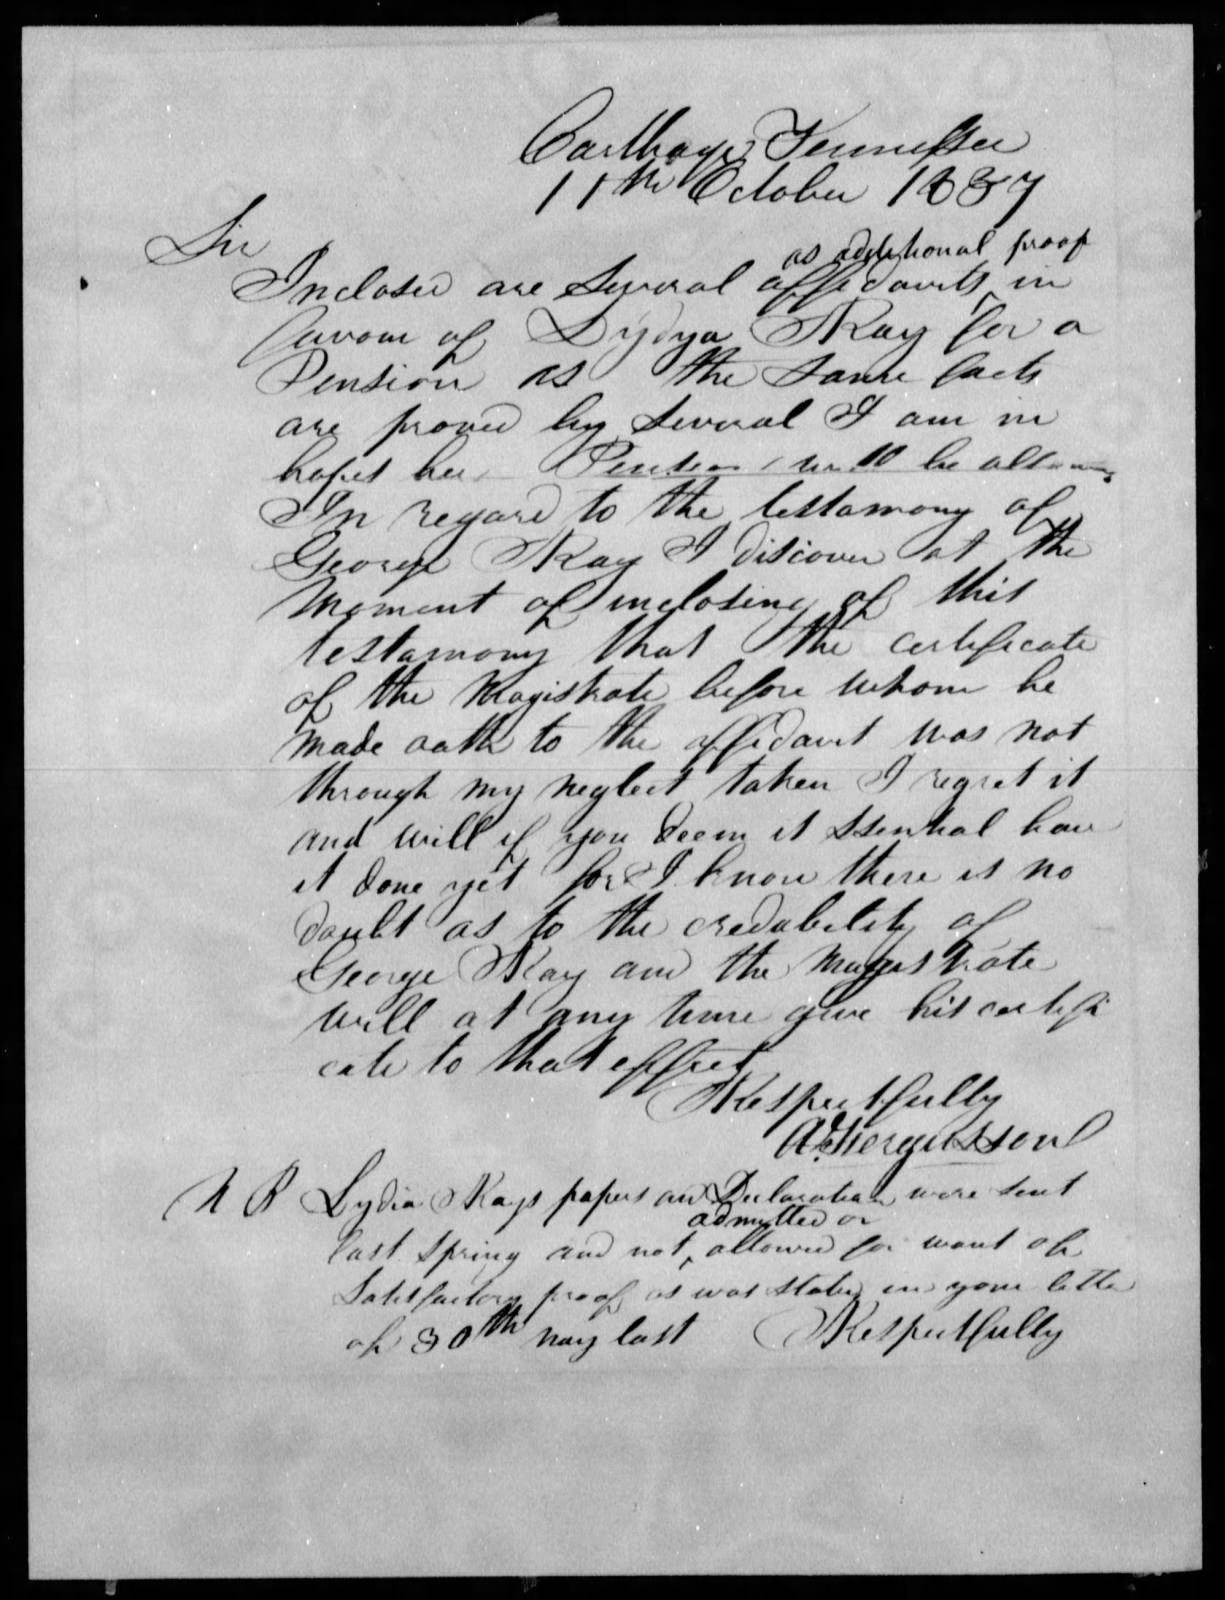 Carthage Tennessee
11th October 1837
Sir
as additional proof
Inclosed are several affidavits ^ in
favour of Lydya Kay for a
Pension as the same facts
are proved by several I am in
hopes her Pension will be allowed
In regard to the testamony of
George Kay I discover at the
moment of inclosing of this
testamony that the certificate
of the Magistrate before whom he
made oath to the affidavit was not
through my neglect taken I regret it
and will if you deem it ssential have
it done yet for I know there is no
doubt as to the credability of
George Kay and the magistrate
will at any time give his certifi
cate to that effect
Respectfully
A Fergusson
N B Lydia Kays papers and Declaration were sent
admitted or
last spring and not ^ allowed for want of
Satisfactory proof as was stated in your letter
of 30th may last Respectfully